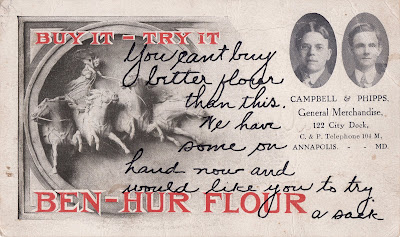 BUY IT - TRY IT
You can't buy
bitter flour
than this.
We have
some on
hand now and
would like you to try
a sack
CAMPBELL & PHIPPS,
General Merchandise,
122 City Dock,
C. & P. Telephone 104 M,
ANNAPOLIS. - - MD.
BEN-HUR FLOUR